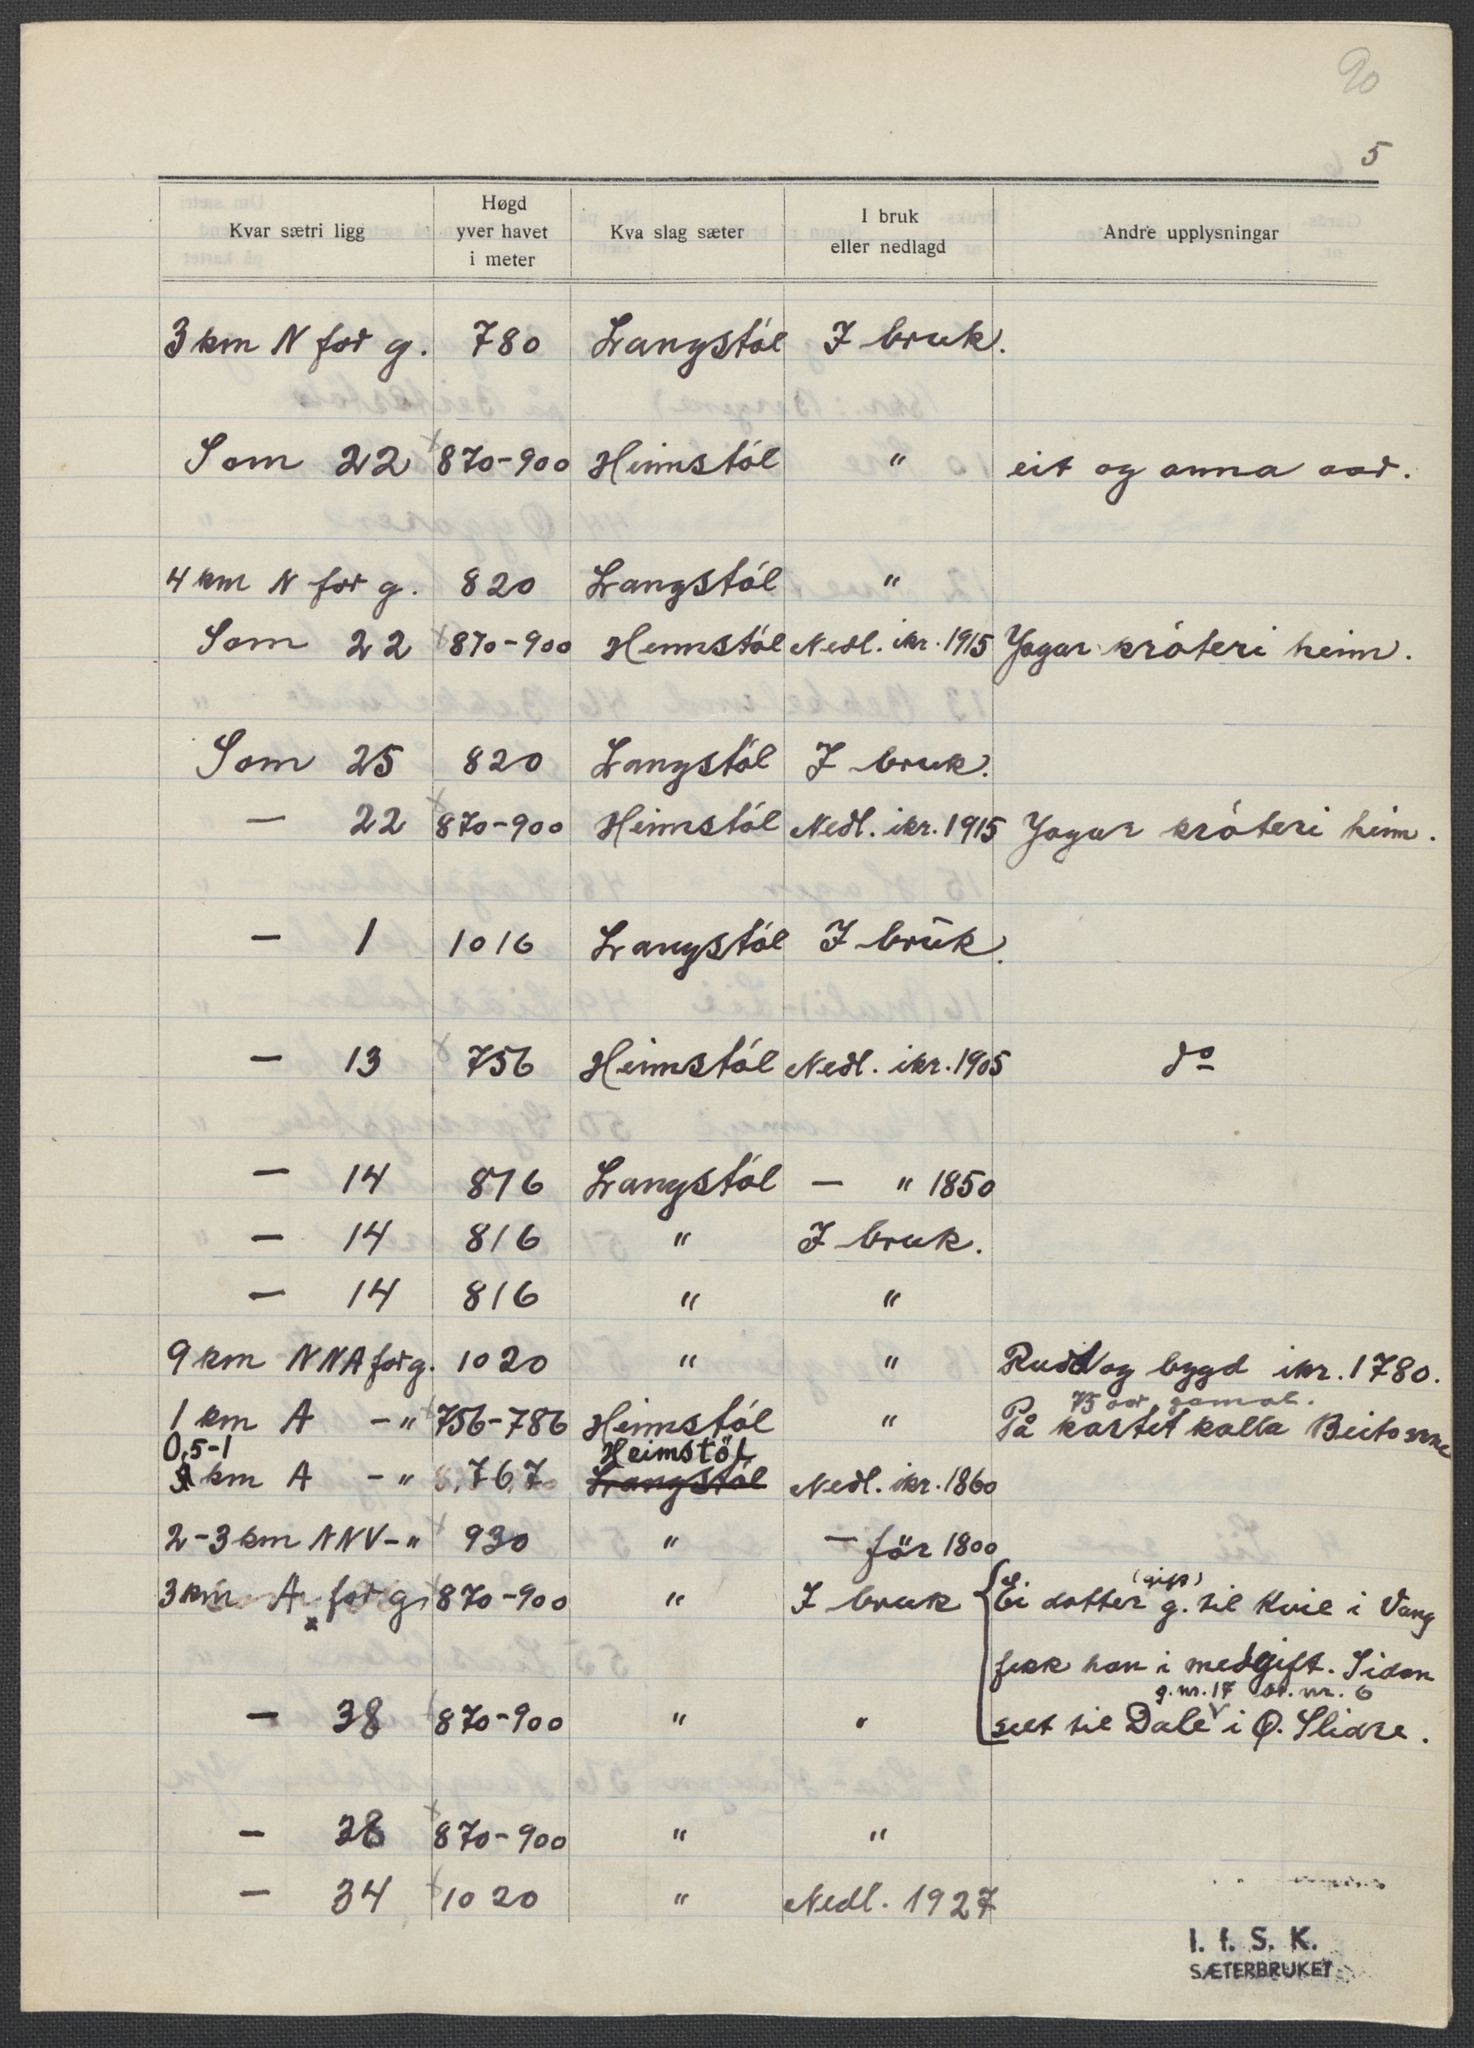 90
5
Kvar sætri ligg | Høgd yver havet i meter | Kva slag sæter | I bruk eller nedlagd | Andre upplysningar
3 km N for g. | 780 | Langstöl | I bruk.
Som 22 | x 870-900 | Heimstöl | " | eit og anna aar.
4 km N for g. | 820 | Langstöl | "
Som 22 | x 870-900 | Heimstöl | Nedl. ikr. 1915 | Jagar kröteri heim.
Som 25 | 820 | Langstöl | I bruk.
— 22 | x 870-900 | Heimstöl | Nedl. ikr. 1915 | Jagar kröteri heim.
— 1 | 1016 | Langstöl | I bruk.
— 13 | x 756 | Heimstöl | Nedl. ikr. 1905 | do
— 14 | 816 | Langstöl | — " 1850
— 14 | 816 | " | I bruk.
— 14 | 816 | " | "
9 km NNA for g. | 1020 | " | " | Rudd og bygd ikr. 1780.
75 aar gamal.
1 km A -" | x 756-786 | Heimstöl | " | På kartet kalla
0,5-1 | Heimstöl
km A -" | 767 | Langstöl | Nedl. ikr. 1860
2-3 km NNV -" | x 930 | " | — för 1800
3 km A for g. | x 870-900 | " | I bruk | Ei dotter (gift) g. til Kvie i Vang
fekk han i medgift. Sidan
g. nr. 17 br. nr. 6
— 38 | x 870-900 | " | " | selt til Dale i Ø. Slidre.
— 38 | x 870-900 | " | "
— 34 | x 1020 | " | Nedl. 1927
I. f. S. K.
SÆTERBRUKET